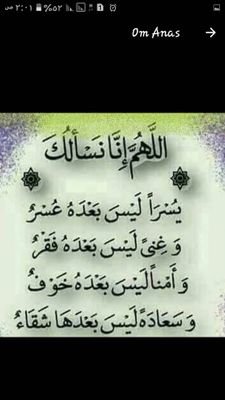 ٣:٠١ ص ٥٢%
Om Anas
اللَّهُمَّ إِنَّا نَسْأَلُكَ
يُسْرَاً لَيْسَ بَعْدَهُ عُسْرٌ
وَ غِنىً لَيْسَ بَعْدَهُ فَقْرٌ
وَ أَمْناً لَيْسَ بَعْدَهُ خَوْفٌ
وَ سَعَادَةً لَيْسَ بَعْدَهَا شَقَاءٌ